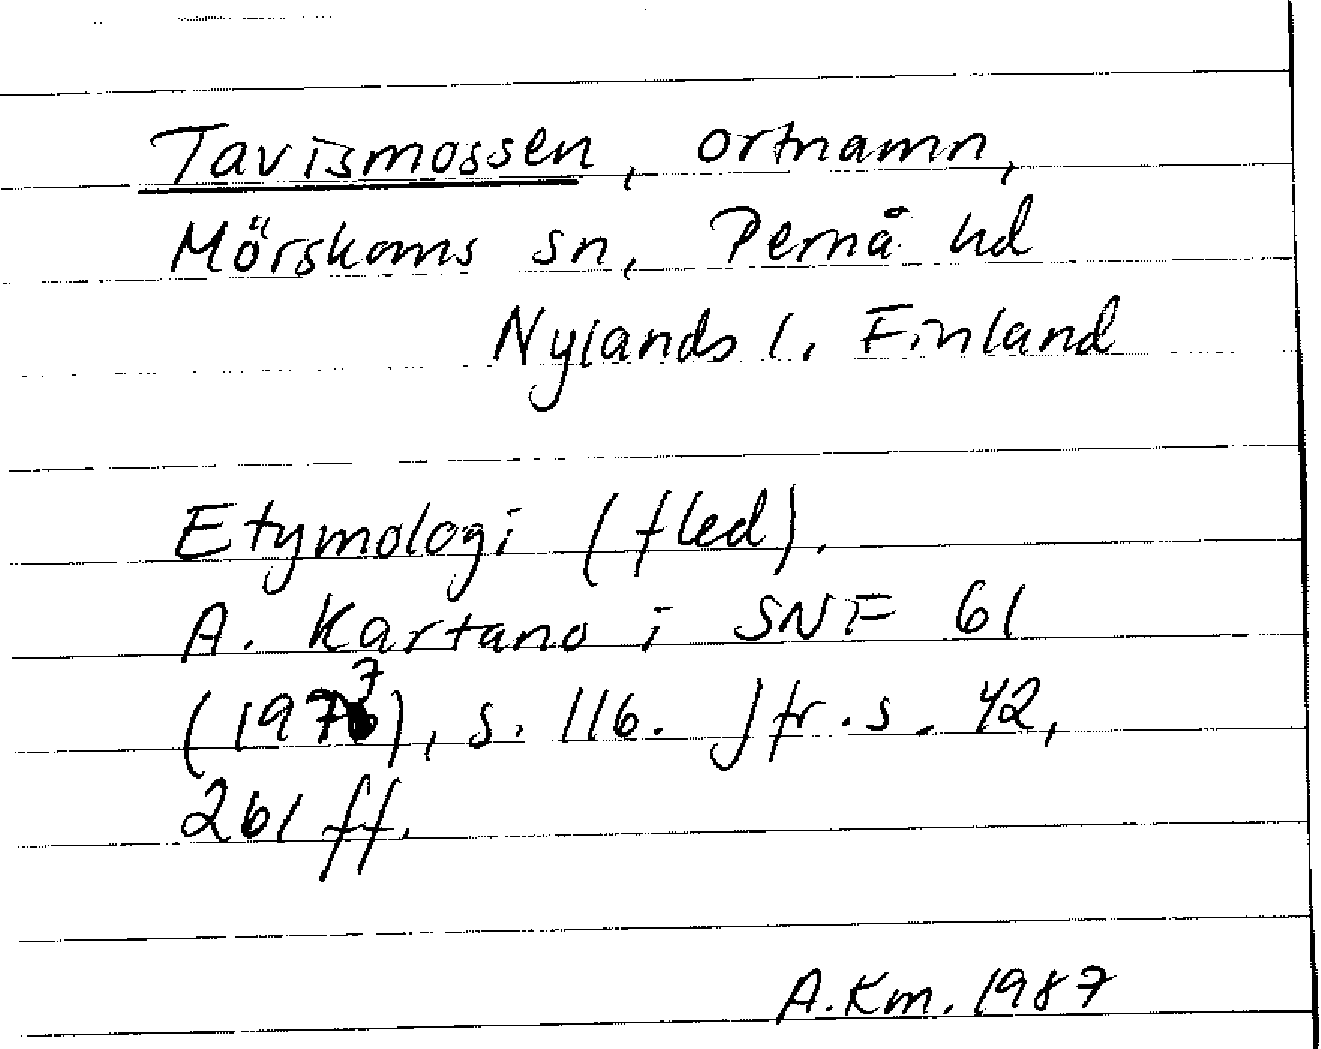 Tavismossen, ortnamn,
Mörskoms sn, Pernå hd
Nylands l. Finland
Etymologi (fled).
A. Kartano i SNF 61
(1977), s. 116. Jfr. s. 42,
261 ff.
A. Km. 1987